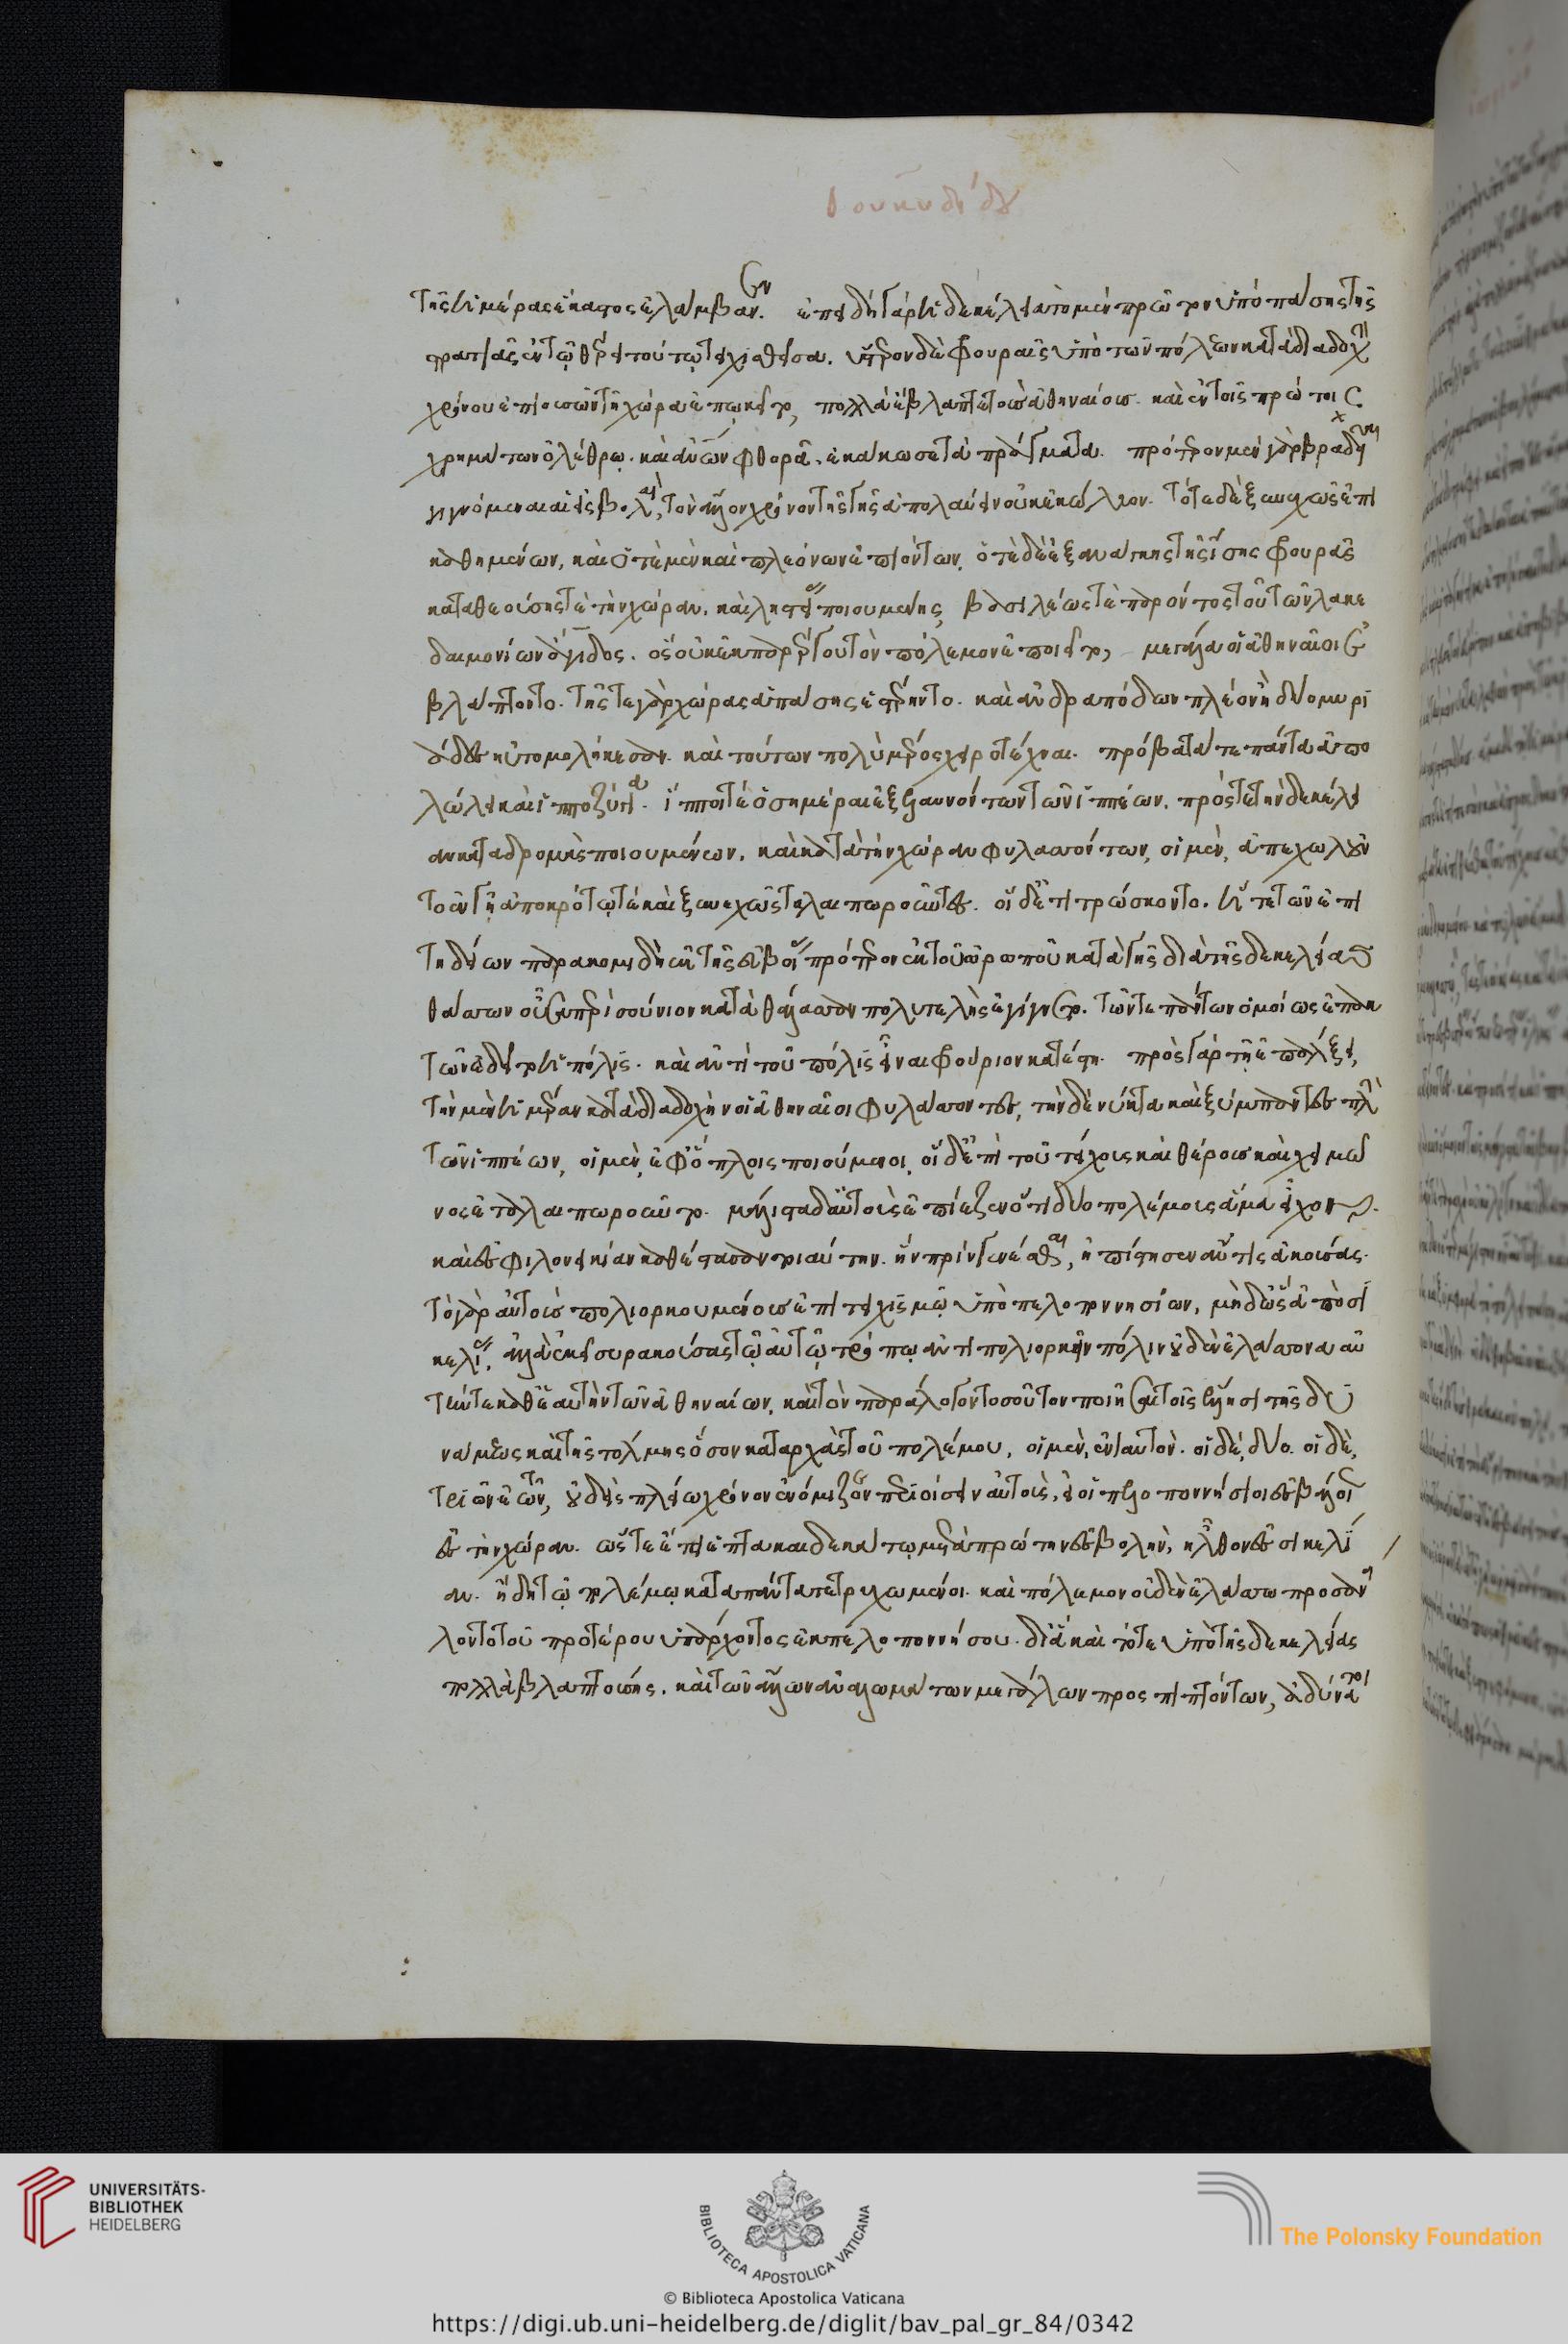 τῆς ἡμέρας ἕκαστος ἐλάμβανεν. ἐπειδὴ γὰρ ἡ δεκέλεια τὸ μὲν πρῶτον ὑπὸ πάσης τῆς
στρατιᾶς ἐν τῷ θέρει τούτῳ τειχισθεῖσα. ὕστερον δὲ φρουραῖς ὑπὸ τῶν πόλεων κατὰ διαδοχὴν
χρόνου ἐπιούσων τῇ χώρα ἐπῳκεῖτο, πολλὰ ἔβλαπτε τοὺς ἀθηναίους. καὶ ἐν τοῖς πρώτοις
χρημάτων ὀλέθρῳ. καὶ ἀνων φθορᾶ. ἐκάκωσε τὰ πράγματα. πρότερον μὲν γὰρ βραχεῖαι
γιγνόμεναι αἱ ἐσβολαὶ, τὸν ἄλλον χρόνον τῆς γῆς ἀπολαύειν οὐκ ἐκώλυον. τότε δὲ ξυνεχῶς ἐπι
καθημένων, καὶ ὁτὲ μὲν καὶ πλεόνων ἐπιόντων, ὁτὲ δὲ ἐξ ἀνάγκης τῆς ἴσης φρουρᾶς
καταθεούσης τὲ τὴν χώραν. καὶ ληστείας ποιουμένης, βασιλέως τὲ παρόντος τοῦ τῶν λακε
δαιμονίων ἄγιδος. ὃς οὐκ ἐκ παρέργου τὸν πόλεμον ἐποιεῖτο, μεγάλα οἱ ἀθηναῖοι ἐ
βλάπτοντο. τῆς τε γὰρ χώρας ἁπάσης ἐστέρηντο. καὶ ἀνδραπόδων πλέον ἢ δύο μυρι
άδες ηὐτομολήκεσαν. καὶ τούτων πολὺ μέρος χειροτέχναι. πρόβατά τε πάντα ἀπο
λώλει καὶ ὑποζύγια. ἵπποι τὲ ὁσημέραι ἐξελαυνόντων τῶν ἱππέων. πρός τε τὴν δεκέλει
αν καταδρομὰς ποιουμένων. καὶ κατὰ τὴν χώραν φυλασσόντων, οἱ μὲν, ἀπεχωλοῦν
το ἐν γῇ ἀποκρότῳ τὲ καὶ ξυνεχῶς ταλαιπωροῦντες. οἱ δὲ ἐτιτρώσκοντο. ἥ τε τῶν ἐπι
τηδείων παρακομιδὴ ἐκ τῆς εὐβοίας πρότερον ἐκ τοῦ ὠρωποῦ κατὰ γῆς διὰ τῆς δεκελείας
θάσσων οὖσα περὶ σούνιον κατὰ θάλασσαν πολυτελὴς ἐγίγνετο. τῶν τε πάντων ὁμοίως ἐπακ
τῶν ἐδεῖτο ἡ πόλις. καὶ ἀντὶ τοῦ πόλις εἶναι φρούριον κατέστη. πρὸς γὰρ τῇ ἐπάλξει,
τὴν μὲν ἡμέραν κατὰ διαδοχὴν οἱ ἀθηναῖοι φυλάσσοντες, τὴν δὲ νύκτα καὶ ξύμπαντες πλὴν
τῶν ἱππέων, οἱ μὲν, ἐφ' ὅπλοις ποιούμενοι, οἱ δὲ ἐπὶ τοῦ τείχους καὶ θέρους καὶ χειμῶ
νος ἐταλαιπωροῦντο. μάλιστα δ' αὐτοὺς ἐπίεζεν ὅτι δύο πολέμους ἅμα εἶχον.
καὶ ἐς φιλονεικίαν καθέστασαν τοιαύτην. ἣν πρὶν γενέσθαι, ἠπίστησεν ἄν τις ἀκούσας.
τὸ γὰρ αὐτοὺς πολιορκουμένους ἐπιτειχισμῷ ὑπὸ πελοποννησίων, μὴδ' ὣς ἀποστῆναι
κελίας, ἀλλὰ ἐκεῖ συρακούσας τῷ αὐτῷ τρόπῳ ἀντιπολιορκεῖν πόλιν οὐδὲν ἐλάσσονα αὐ
τήν τε καθ' ἑαυτὴν τῶν ἀθηναίων. καὶ τὸν παράλογον τοσοῦτον ποιῆσαι τοῖς ἕλλησι τῆς δυ
νάμεως καὶ τῆς τόλμης ὅσον κατ' ἀρχὰς τοῦ πολέμου, οἱ μὲν, ἐνιαυτὸν. οἱ δέ, δύο. οἱ δὲ,
τριῶν ἐτῶν, οὐδεὶς πλείω χρόνον ἐνόμιζον περιοίσειν αὐτοὺς, εἰ οἱ πελοποννήσιοι ἐσβάλοιεν
ἐς τὴν χώραν. ὥστε ἔτει ἑπτακαιδεκάτῳ μετὰ πρώτην ἐσβολὴν, ἦλθον ἐς σικελί
αν. ἤδη τῷ πολέμῳ κατὰ πάντα τετρυχωμένοι. καὶ πόλεμον οὐδὲν ἐλάσσω προσανεί
λοντο τοῦ προτέρου ὑπάρχοντος ἐκ πελοποννήσου. δι' ἃ καὶ τότε ὑπὸ τῆς δεκελείας
πολλὰ βλαπτούσης. καὶ τῶν ἄλλων ἀναλωμάτων μεγάλων προσπιπτόντων, ἀδύνατοι
UNIVERSITÄTS-
BIBLIOTHEK
HEIDELBERG
BIBLIOTECA APOSTOLICA VATICANA
The Polonsky Foundation
© Biblioteca Apostolica Vaticana
https://digi.ub.uni-heidelberg.de/diglit/bav_pal_gr_84/0342